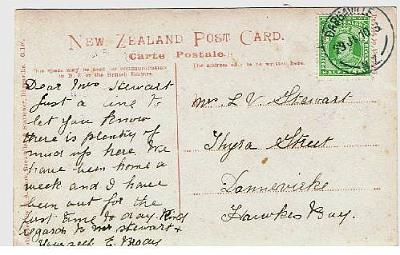 NEW ZEALAND POST CARD.
Carte Postale.
This space may be used for communication
in N.Z. or the British Empire.
The address only to be written here.
DARGAVILLE
HALF
Dear Mrs Stewart
Just a line to
let you know
there is plenty of
mud up here. We
have been home a
week and I have
been out for the
first time to day. Kind
regards to Mr Stewart &
Yourself E.
Mr L V Stewart
Thyra Street
Dannevirke
Hawkes Bay.